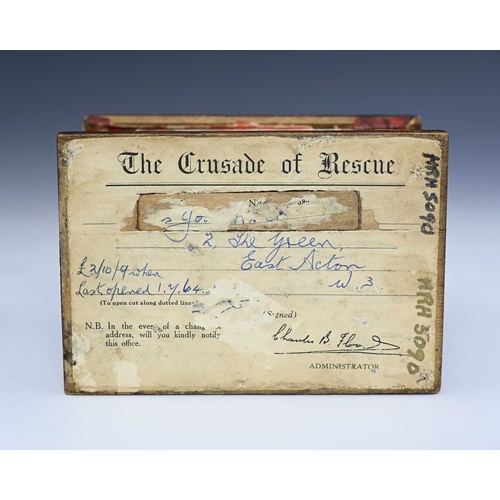 The Crusade of Rescue
2, The Green,
East Acton
W.3.
£2/10/9 when
Last opened 1.7.64.
(To open cut along dotted line
(Signed)
N.B. In the event of a chang
address, will you kindly notify
this office.
Charles B Flood
ADMINISTRATOR
MRH 5090
MRH 5090